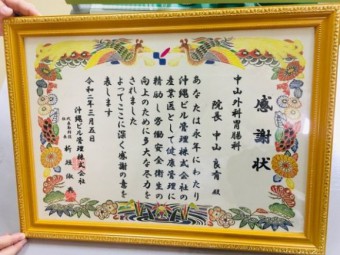 感謝状
中山外科胃腸科
院長 中山 良肯 殿
あなたは永年にわたり
沖縄ビル管理株式会社の
産業医として健康管理に
精励し労働安全衛生の
向上のために多大な尽力を
されました
よってここに深く感謝の意を
表します
令和二年三月五日
沖縄ビル管理株式会社